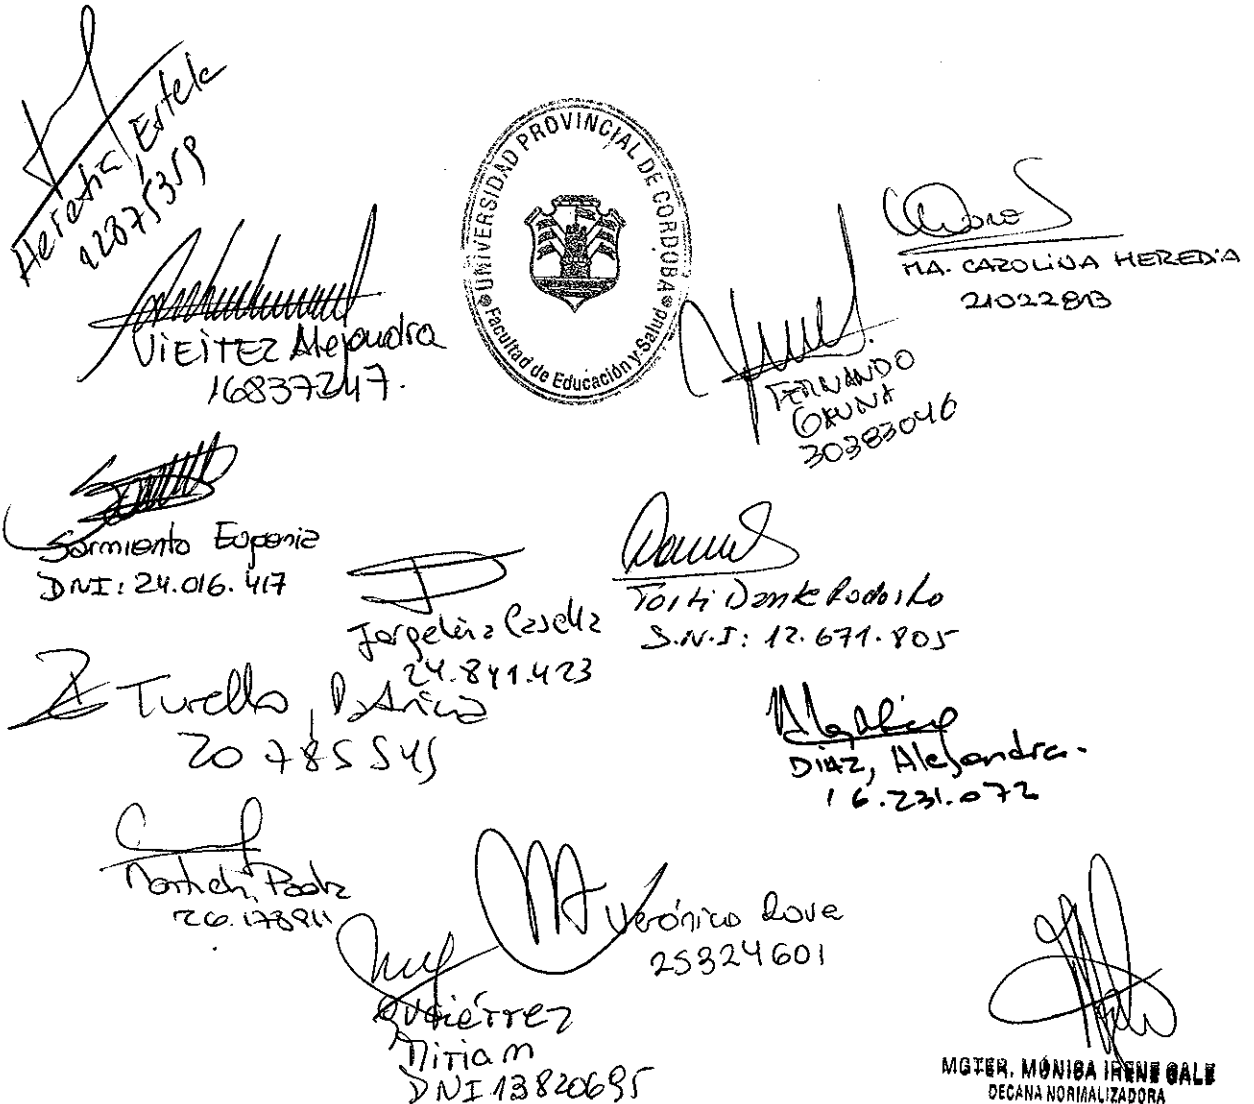 Heredia, Estela
12875359
UNIVERSIDAD PROVINCIAL DE CORDOBA
Facultad de Educación y Salud
MA. CAROLINA HEREDIA
21022813
VIEITEZ Alejandra
16837247.
FERNANDO
GAUNA
30383046
Sarmiento Eugenia
DNI: 24.016.417
Jorgelina Casella
24.841.423
Torti Dante Rodolfo
D.N.I: 12.671.805
Turello, Patricia
20 785 545
DIAZ, Alejandra.
16.231.072
Paola
26.178911
Verónica
25324601
Gutiérrez
Miriam
DNI 13820695
MGTER. MÓNICA IRENE GALE
DECANA NORMALIZADORA